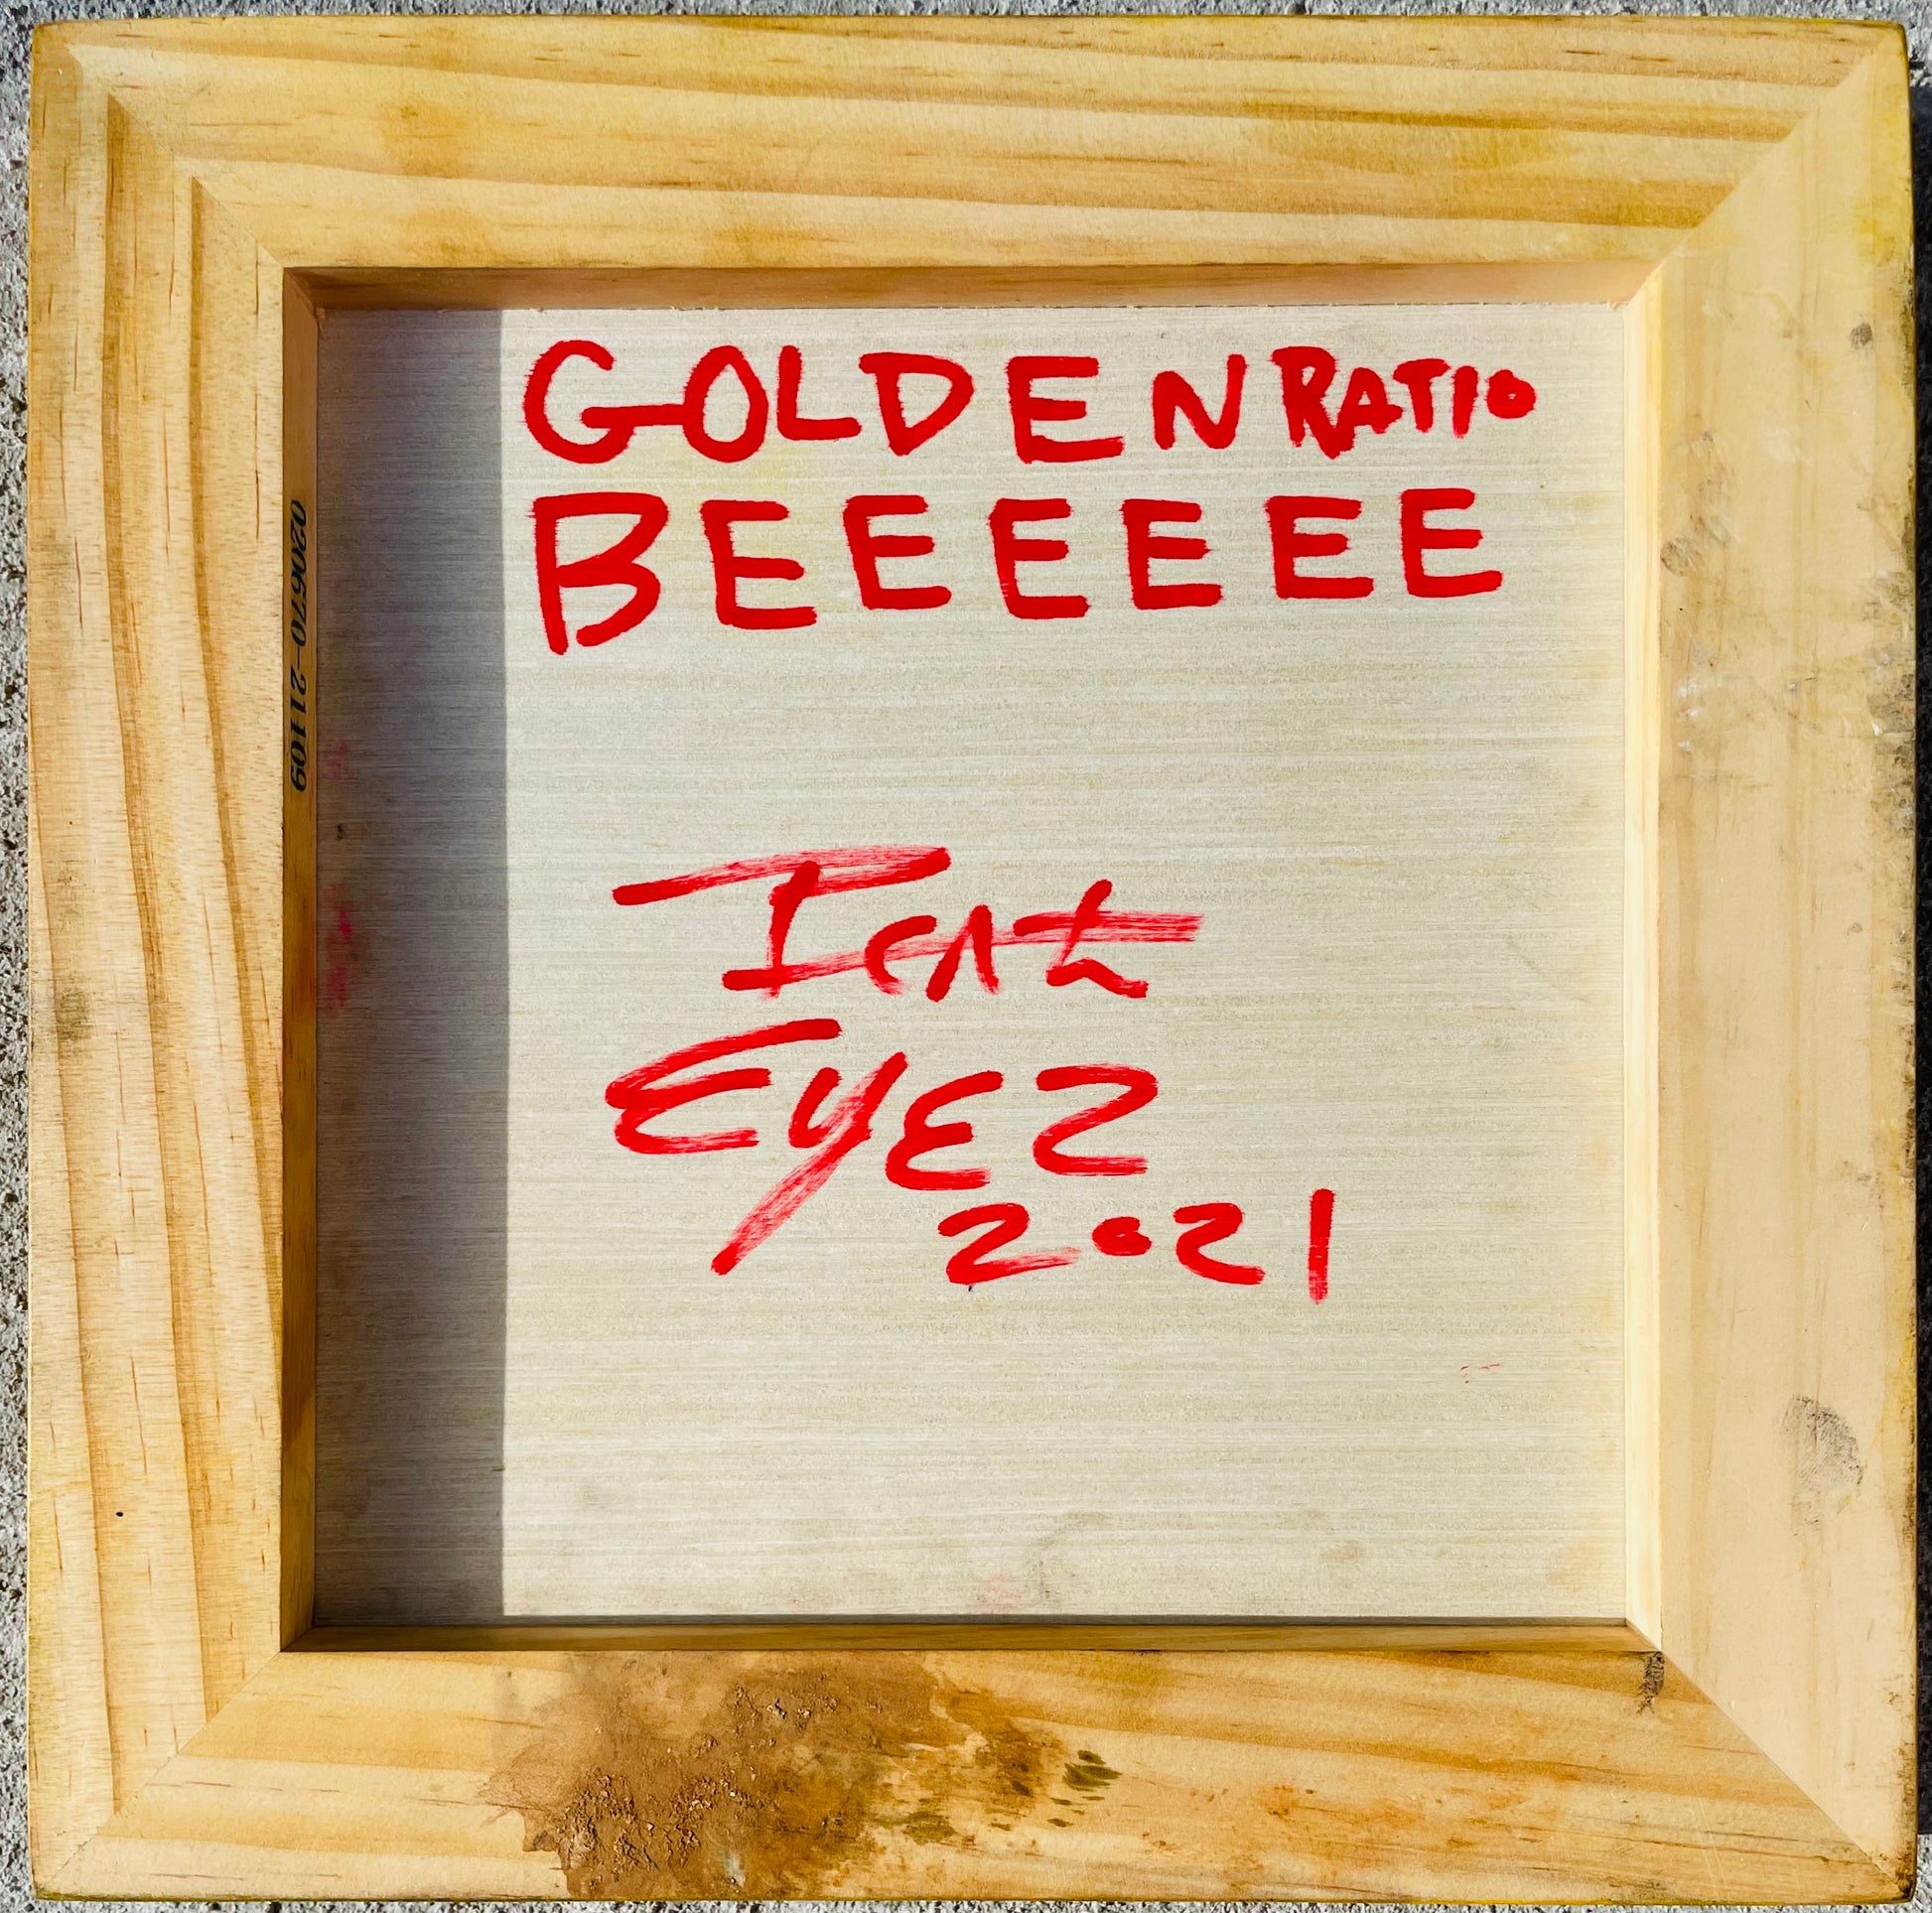 GOLDEN RATIO
BEEEEEE
EyEz
2021
020670-21109